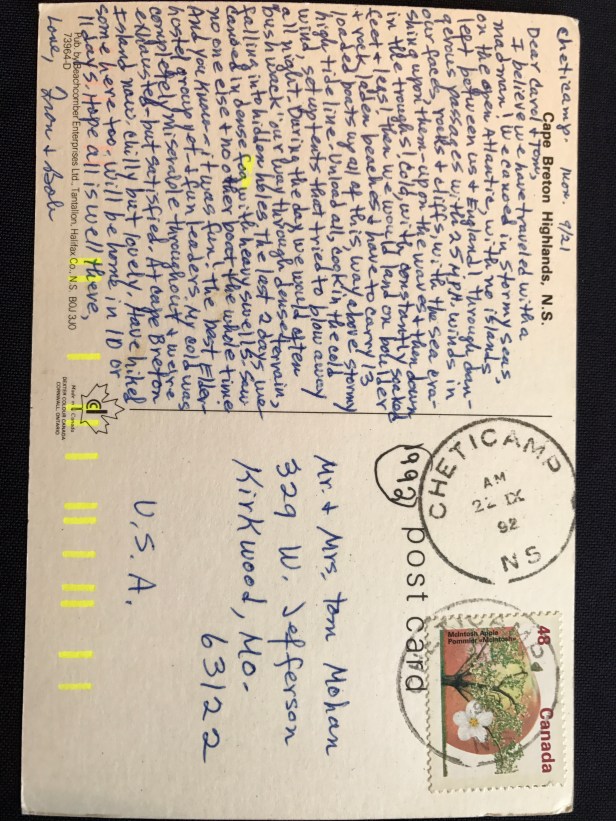 Cape Breton Highlands, N.S.
Cheticamp. Mon. 9/21
Dear Carol & Tom,
I believe we have traveled with a
madman! We canoed in stormy seas,
on the open Atlantic, with no islands
left between us & England! Through dan-
gerous passages with 25 MPH winds in
our faces, rocks & cliffs, with the sea cra-
shing upon them - upon the waves & then down
in the troughs! Cold, with constantly soaked
feet & legs! Then we would land on boulder
& rock laden beaches & have to carry 13
loaded boats up all of this, way above stormy
high tide line. Unload all, cook in the cold
wind, set up tents that tried to plow away
all night. During the day we would often
bushwack our way through dense terrain,
falling into hidden holes. The last 2 days we
canoed in dense fog with heavy swells. Saw
no one else & no other boat the whole time.
And you know - it was fun, the best Elder-
hostel group yet & fun leaders. My cold was
completely miserable throughout & we're
exhausted - but satisfied. At Cape Breton
Island now. Chilly but lovely. Have hiked
some here too. Will be home in 10 or
11 days. Hope all is well there,
Love,
Pub. by Beachcomber Enterprises Ltd., Tantallon, Halifax Co., N.S. B0J 3J0
73964-D
Made in Canada
DEXTER COLOUR CANADA
CORNWALL, ONTARIO
post card
1992
CHETICAMP
AM
22 IX
92
NS
48
Canada
McIntosh Apple
Pommier «McIntosh»
Mr. & Mrs. Tom Mohan
329 W. Jefferson
Kirkwood, Mo.
63122
U.S.A.